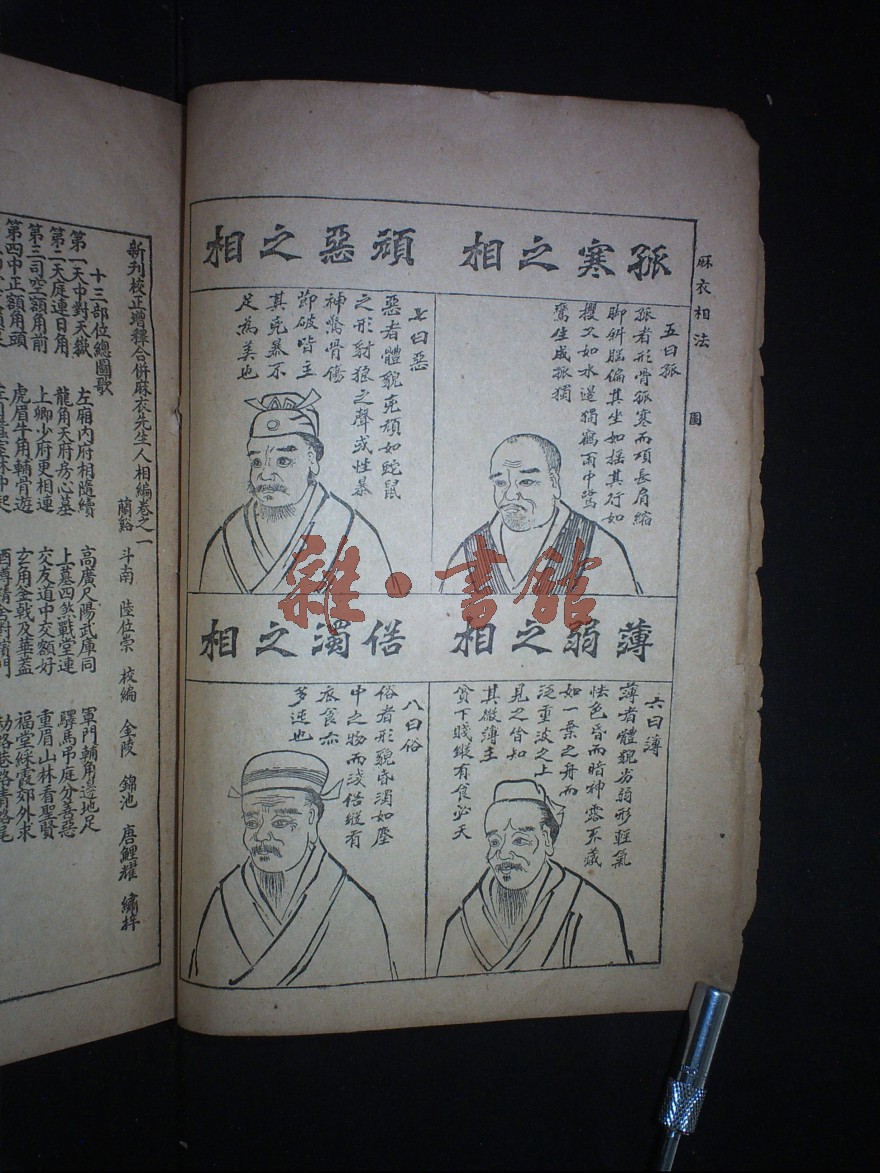 麻衣相法
圖
孤寒之相
五曰孤
孤者形骨孤寒而項長肩縮
脚斜腦偏其坐如摇其行如
攫又如水邊獨鶴雨中鷺
鷥生成孤獨
頑惡之相
七曰惡
惡者體貌兇頑如蛇鼠
之形豺狼之聲或性暴
神驚骨傷
節破皆主
其兇暴不
足為美也
薄弱之相
六曰薄
薄者體貌劣弱形輕氣
怯色昏而暗神露不藏
如一葉之舟而
泛重波之上
見之皆知
其微薄主
貧下賤縱有食必夭
俗濁之相
八曰俗
俗者形貌昏濁如塵
中之物而淺俗縱有
衣食亦
多迍也
雜·書館
新刊校正增釋合併麻衣先生人相編卷之一
蘭谿 斗南 陸位崇 校編 金陵 錦池 唐鯉耀 繡梓
十三部位總圖歌
第一天中對天嶽 左廂內府相隨續 高廣尺陽武庫同 軍門輔角邊地足
第二天庭連日角 龍角天府房心墓 上墓四煞戰堂連 驛馬弔庭分善惡
第三司空額角前 上卿少府更相連 交友道中交額好 重眉山林看聖賢
第四中正額角頭 虎眉牛角輔骨遊 玄角斧戟及華蓋 福堂綵霞郊外求